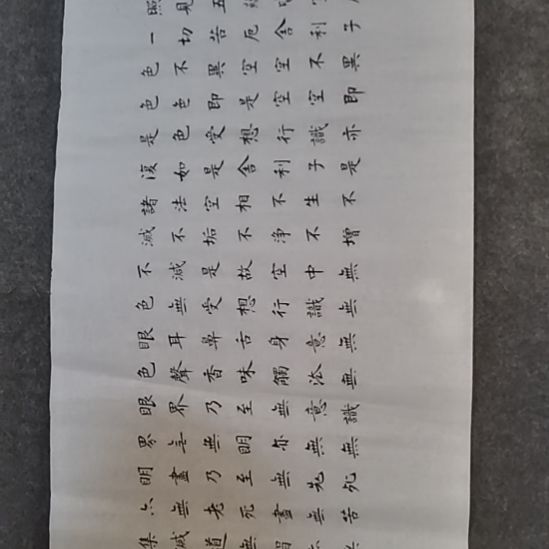 照見五
一切苦厄舍利子
色不異空空不異
色色即是空空即
是色受想行識亦
復如是舍利子是
諸法空相不生不
滅不垢不淨不增
不減是故空中無
色無受想行識無
眼耳鼻舌身意無
色聲香味觸法無
眼界乃至無意識
界無無明亦無無
明盡乃至無老死
亦無老死盡無苦
集滅道無